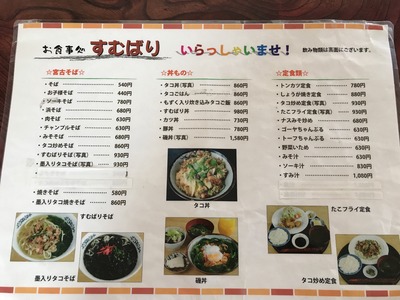 お食事処 すむばり いらっしゃいませ！ 飲み物類は裏面にございます。
☆宮古そば☆
・そば 540円
・お子様そば 440円
・ソーキそば 780円
・浜そば 680円
・肉そば 630円
・チャンプルそば 680円
・みそそば 680円
・タコ炒めそば 860円
・すむばりそば（写真） 930円
・墨入りタコそば（写真） 930円
・焼きそば 580円
・墨入りタコ焼きそば 860円
すむばりそば
墨入りタコそば
☆丼もの☆
・タコ丼（写真） 860円
・タコごはん 860円
・もずく入り炊き込みタコご飯 860円
・すむばり丼 930円
・カツ丼 730円
・豚丼 780円
・磯丼（写真） 1,580円
タコ丼
磯丼
☆定食類☆
・トンカツ定食 780円
・しょうが焼き定食 880円
・タコ炒め定食（写真） 930円
・たこフライ定食（写真） 930円
・ナスみそ炒め 680円
・ゴーヤちゃんぷる 630円
・トーフちゃんぷる 630円
・野菜いため 630円
・みそ汁 630円
・ソーキ汁 830円
・すみ汁 1,080円
たこフライ定食
タコ炒め定食